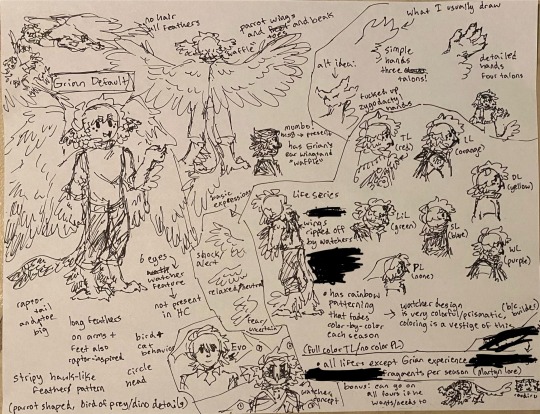 no hair
all feathers
parrot wings
and and beak
toes
waffle
what I usually draw
simple
hands
three
talons!
detailed
hands
four talons
alt idea:
tucked up
zygodactyl
hands
Grian Default
mumbo
present
has Grian's
ear wings and
"waffle"
TL
(red)
LL
(orange)
DL
(yellow)
LiL
(green)
SL
(blue)
WL
(purple)
PL
(none)
basic
expressions
shock/
alert
relaxed/neutral
fear/
uncertain
Life series
wings
ripped off
by watchers
has rainbow
patterning
that fades
color-by-color
each season
(full color TL/no color PL)
watcher design
is very colorful/prismatic,
coloring is a vestige of this
(b/c
builder)
all lifers except Grian experience
fragments per season (Martyn lore)
bonus: can go on
all fours if he
wants/needs to
6 eyes
watcher
feature
not present
in HC
raptor
tail
and toe
big
long feathers
on arms +
feet also
raptor-inspired
bird +
cat
behavior
circle
head
stripy hawk-like
feathers pattern
(parrot shaped, bird of prey/dino details)
Evo
watcher
concept